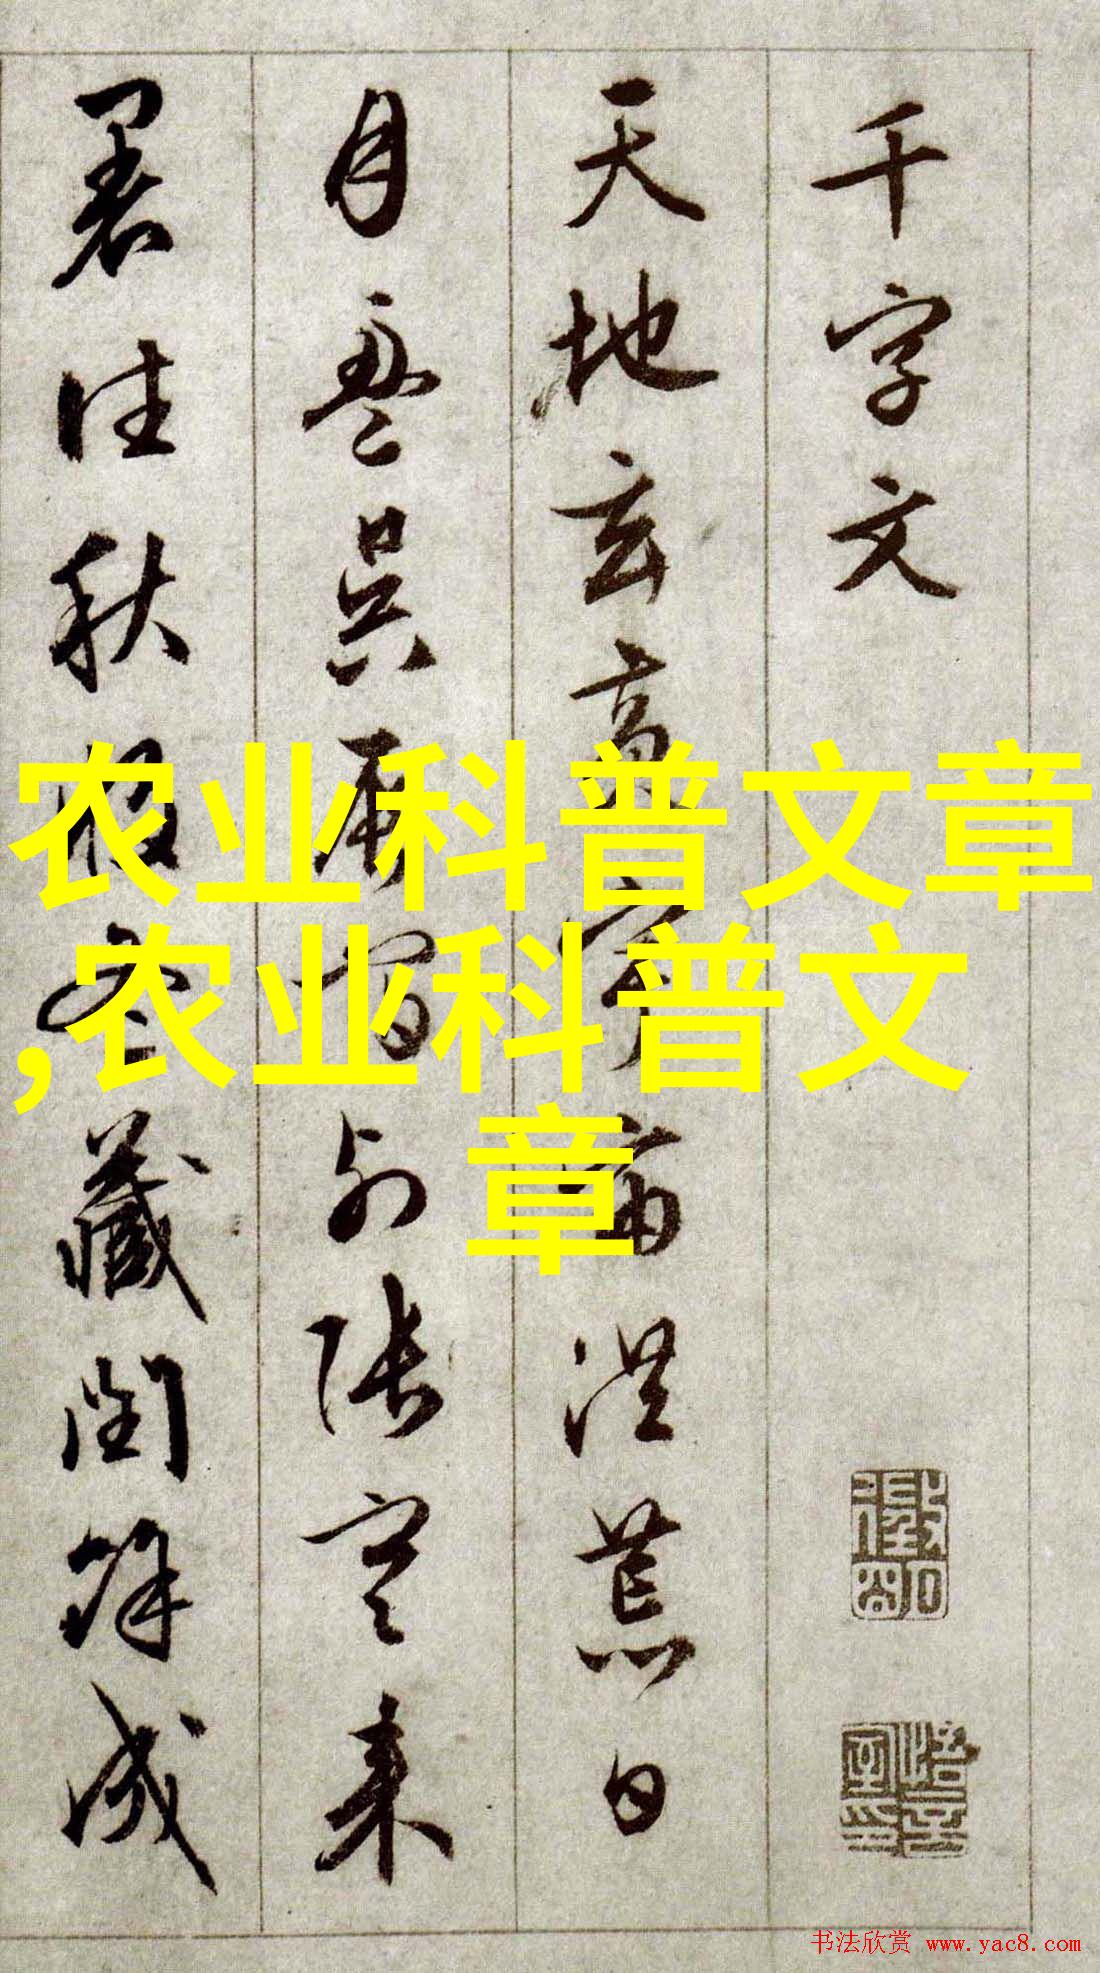 千字文
天地玄黃宇宙洪荒日
月盈昃辰宿列張寒來
暑往秋收冬藏閏餘成
农业科普文章
,农业科普文
章
书法欣赏 www.yac8.com